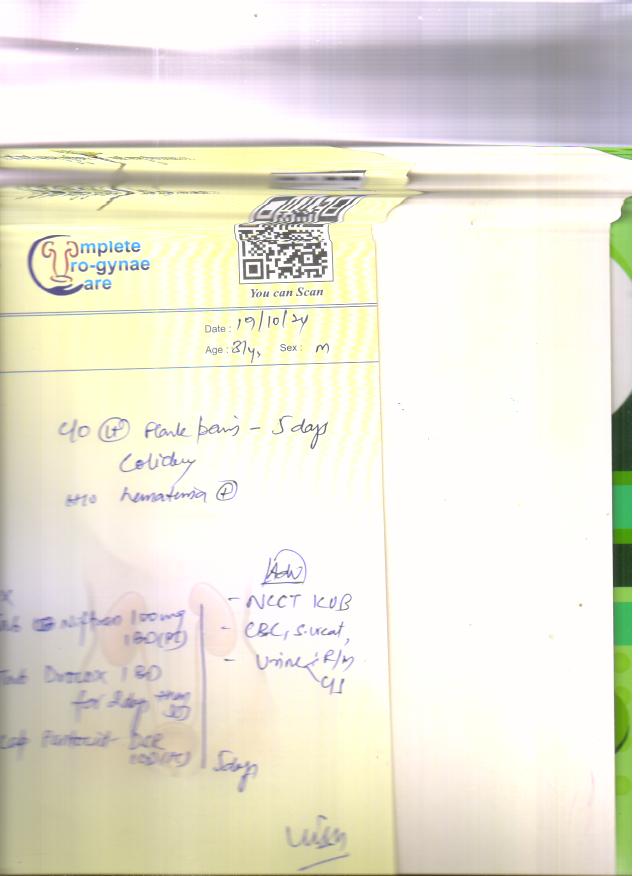 Complete
Uro-gynae
Care
You can Scan
Date : 19/10/24
Age : 31y, Sex : M
C/O (Lt) Flank pain – 5 days
Colicky
H/O hematuria (+)
Adv
- NCCT KUB
- CBC, S. creat,
- Urine R/M
C/S
Tab Niftran 100mg
1 BD (PC)
Tab Drotex 1 BD
for 2 days then
Cap Pantocid DSR
1 OD
5 days